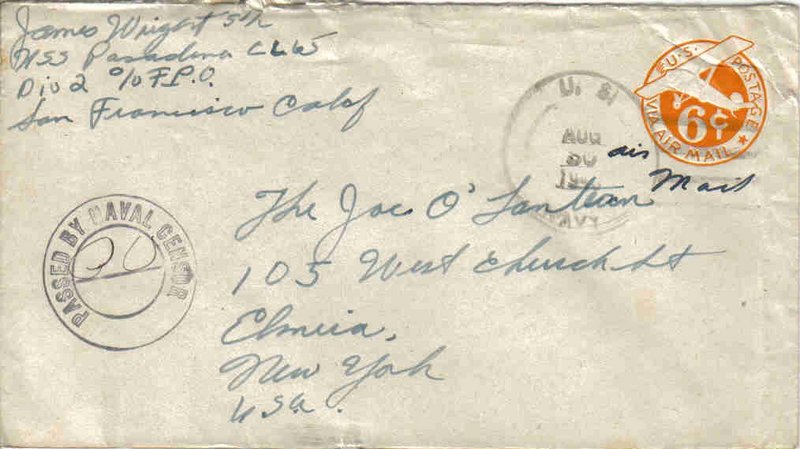 James Wright S 1/c
USS Pasadena CL65
Div 2 c/o F.P.O.
San Francisco Calif
U.S. POSTAGE
6¢
VIA AIR MAIL
U. S.
AUG
30
NAVY
air
Mail
PASSED BY NAVAL CENSOR
The Jac O' Lantern
105 West Church St
Elmira,
New York
U.S.A.